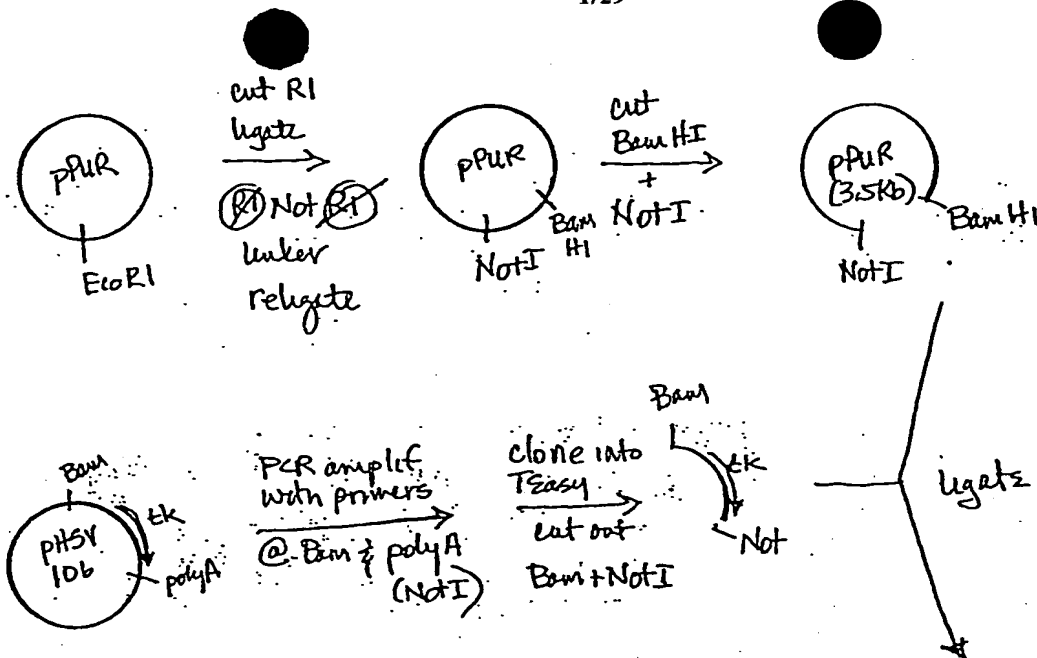 1/29
pPUR
EcoRI
cut RI
ligate
RI Not RI
linker
religate
pPUR
NotI
Bam
HI
cut
Bam HI
+
NotI
pPUR
(3.5Kb)
Bam HI
NotI
Bam
pHSV
106
tk
polyA
PCR amplif.
with primers
@ Bam & polyA
(NotI)
clone into
TEasy
cut out
Bam + NotI
Bam
tk
Not
ligate